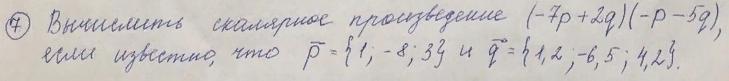 ⑦ Вычислить скалярное произведение (-7p+2q)(-p-5q),
если известно, что p̅ = {1; -8; 3} и q̅ = {1,2; -6,5; 4,2}.